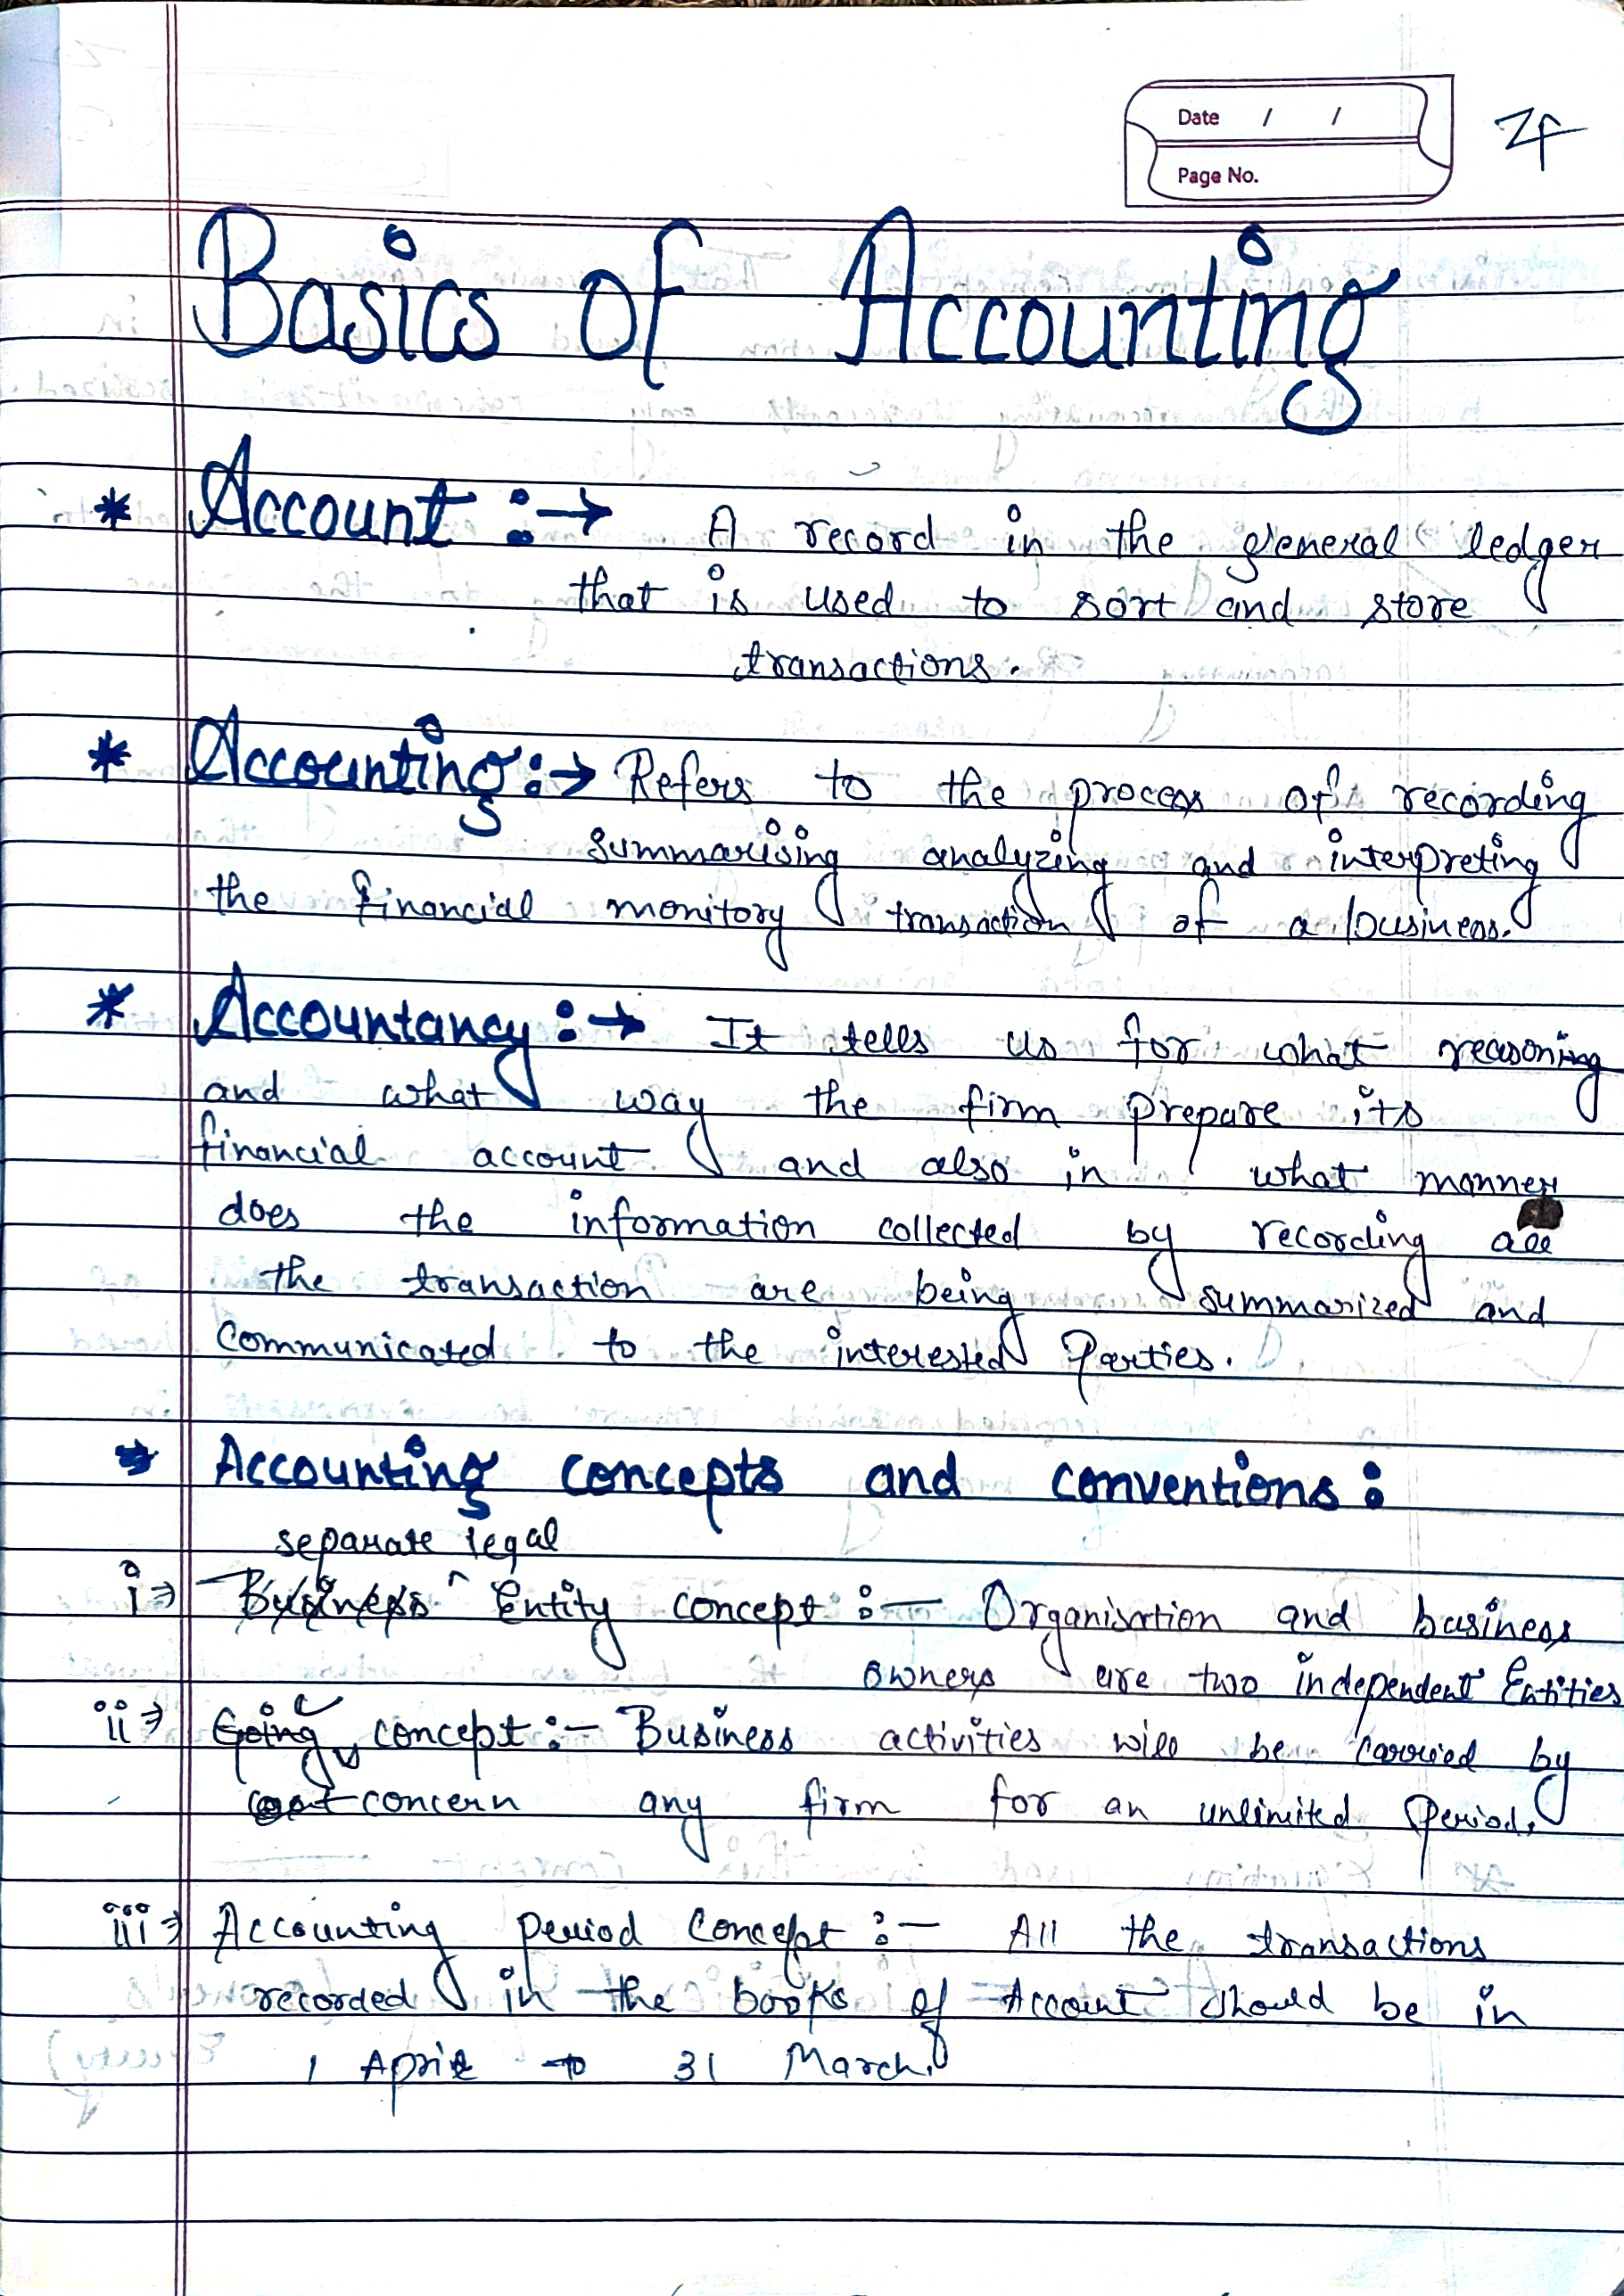 Date / /
Page No.
Basics of Accounting
* Account :→ A record in the general ledger
that is used to sort and store
transactions.
* Accounting :→ Refers to the process of recording
summarising analyzing and interpreting
the financial monitory transaction of a business.
* Accountancy :→ It tells us for what reasoning
and what way the firm prepare its
financial account and also in what manner
does the information collected by recording all
the transaction are being summarized and
communicated to the interested Parties.
Accounting concepts and conventions :
separate legal
i ⇒ Business ^ Entity concept :— Organisation and business
owners are two independent Entities
ii ⇒ Going concept :— Business activities will be carried by
concern any firm for an unlimited Period.
iii ⇒ Accounting period Concept :— All the transactions
recorded in the books of Account should be in
1 April to 31 March.